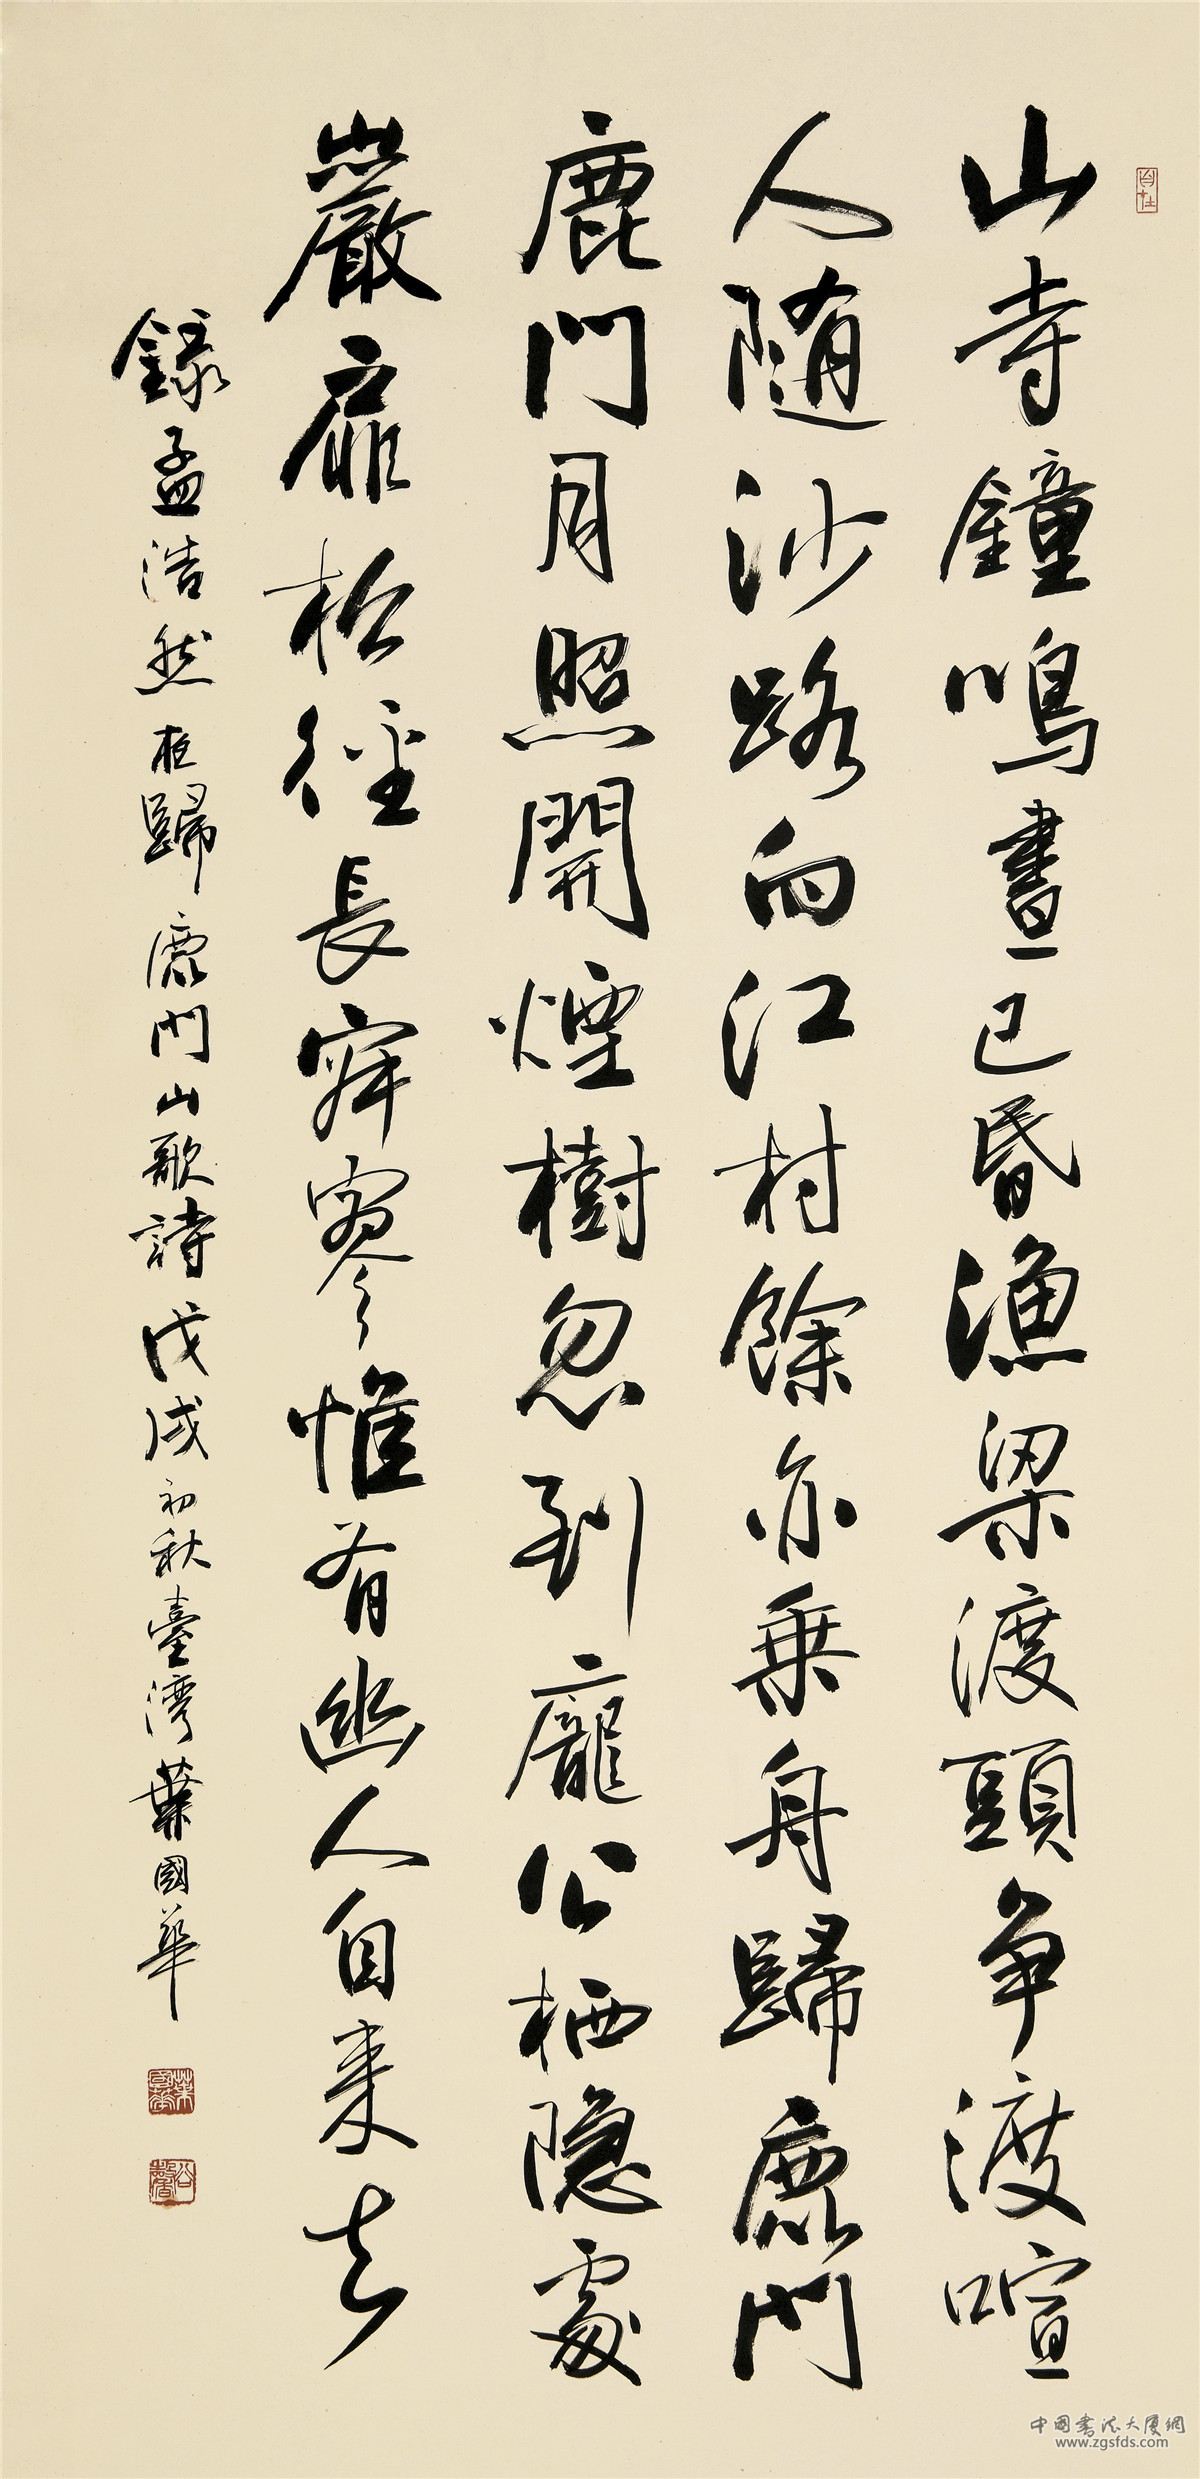 自在
山寺鐘鳴晝已昏漁梁渡頭爭渡喧
人隨沙路向江村餘亦乗舟歸鹿門
鹿門月照開煙樹忽到龐公栖隱處
巖扉松徑長寂寥惟有幽人自来去
錄孟浩然夜歸鹿門山歌詩戊戌初秋臺灣葉國華
葉國華
中国书法大厦網
www.zgsfds.com